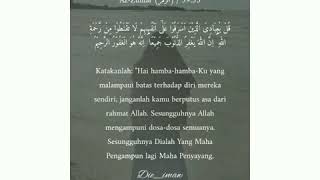 Az-Zumar (الزمر) / 39:53
قُلْ يٰعِبَادِيَ الَّذِيْنَ اَسْرَفُوْا عَلٰٓى اَنْفُسِهِمْ لَا تَقْنَطُوْا مِنْ رَّحْمَةِ
اللّٰهِ ۗاِنَّ اللّٰهَ يَغْفِرُ الذُّنُوْبَ جَمِيْعًا ۗاِنَّهٗ هُوَ الْغَفُوْرُ الرَّحِيْمُ
Katakanlah: "Hai hamba-hamba-Ku yang
malampaui batas terhadap diri mereka
sendiri, janganlah kamu berputus asa dari
rahmat Allah. Sesungguhnya Allah
mengampuni dosa-dosa semuanya.
Sesungguhnya Dialah Yang Maha
Pengampun lagi Maha Penyayang.
Die_iman